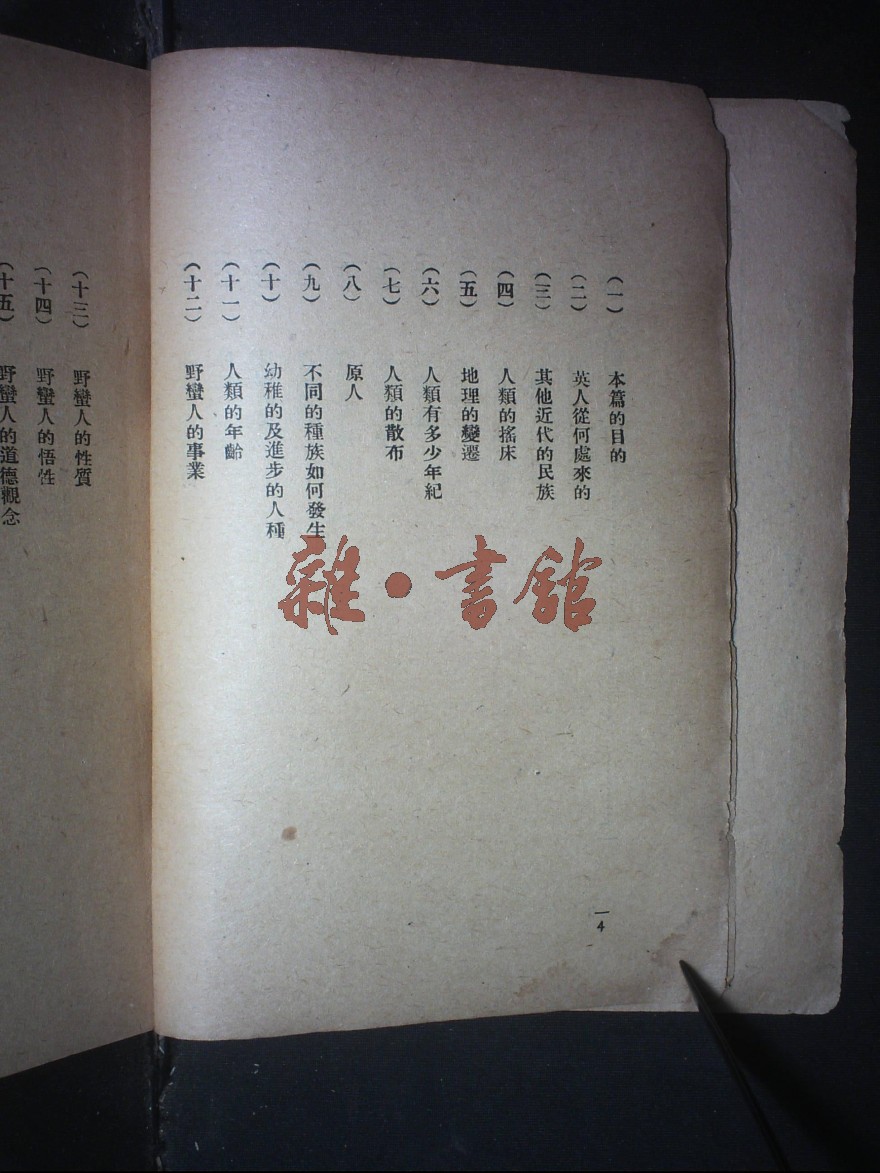 (一) 本篇的目的
(二) 英人從何處來的
(三) 其他近代的民族
(四) 人類的搖床
(五) 地理的變遷
(六) 人類有多少年紀
(七) 人類的散布
(八) 原人
(九) 不同的種族如何發生
(十) 幼稚的及進步的人種
(十一) 人類的年齡
(十二) 野蠻人的事業
一4
(十三) 野蠻人的性質
(十四) 野蠻人的悟性
(十五) 野蠻人的道德觀念
雜·書館